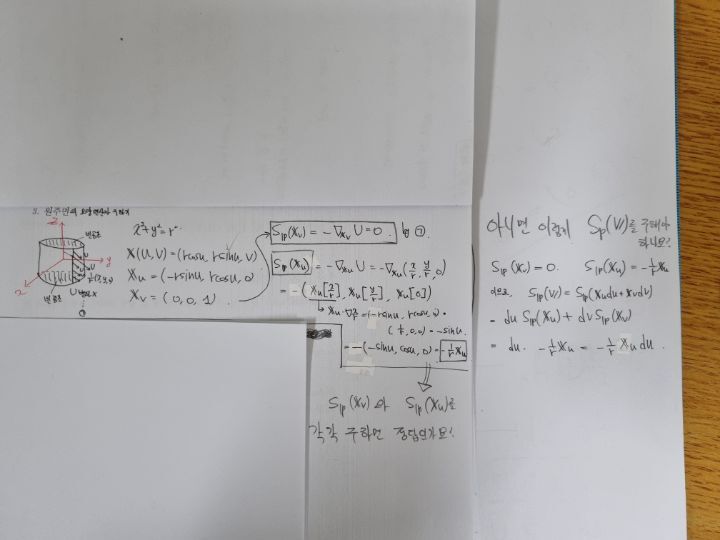 3. 원주면의 모양연산자 구하기
x²+y²=r²
𝕏(u,v)=(rcosu, rsinu, v)
𝕏u=(-rsinu, rcosu, 0)
𝕏v=(0,0,1)
z
y
x
S|p(𝕏v) = -∇𝕏v U = 0. by ㉠.
S|p(𝕏u) = -∇𝕏u U = -∇𝕏u(x/r, y/r, 0)
= -(𝕏u[x/r], 𝕏u[y/r], 𝕏u[0])
𝕏u·∇x/r = (-rsinu, rcosu, 0)·
(1/r, 0, 0) = -sinu.
= -(-sinu, cosu, 0) = -1/r 𝕏u
S|p(𝕏v) 와 S|p(𝕏u)를
각각 구하면 정답인가요?
아니면 이렇게 Sp(V)를 구해야
하나요?
S|p(𝕏v)=0. S|p(𝕏u)=-1/r 𝕏u
이므로, S|p(V)=S|p(𝕏udu+𝕏vdv)
= du S|p(𝕏u) + dv S|p(𝕏v)
= du. -1/r 𝕏u = -1/r 𝕏u du.